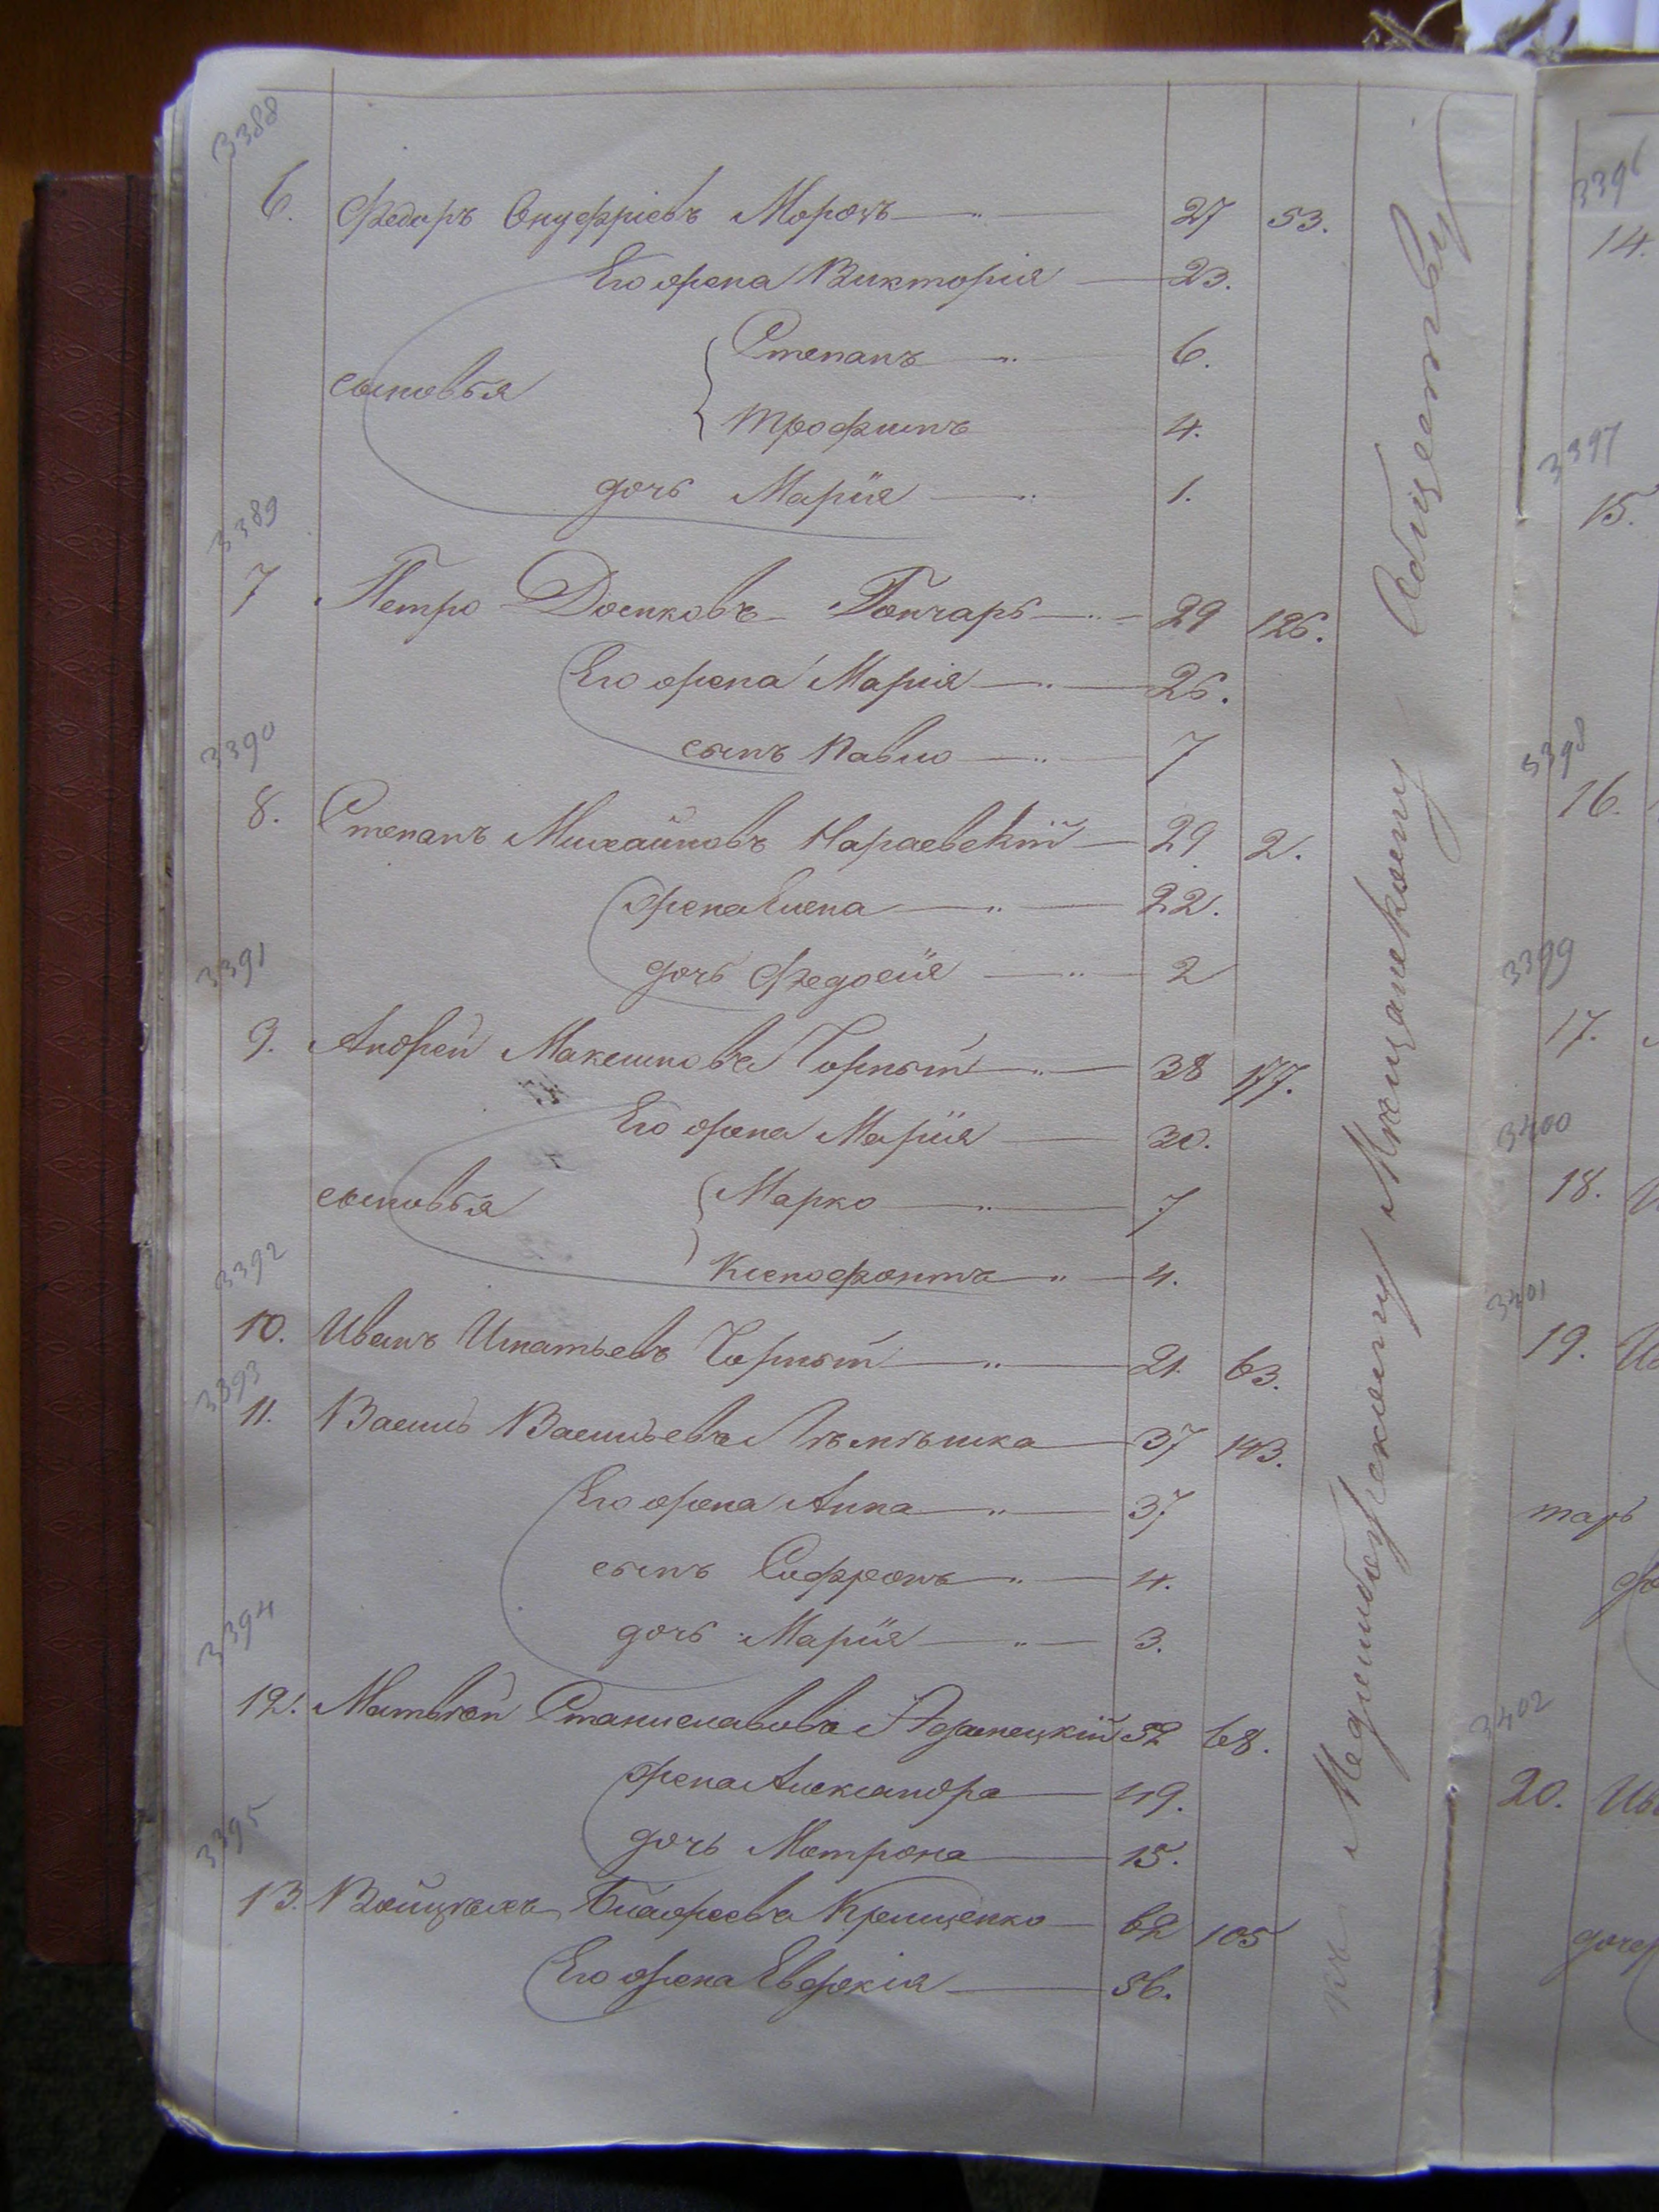 3388
6. Федоръ Онуфріевъ Морозъ — " 27 53.
Его жена Викторія — 23.
сыновья
Степанъ — " 6.
Трофимъ 4.
дочь Марія — " 1.
3389
7 Петро Доенковъ Гончаръ — " — 29 126.
Его жена Марія — " — 26.
сынъ Павло — " — 7
3390
8. Степанъ Михайловъ Нараевскій — 29 2.
жена Елена — " — 22.
дочь Федосія — " — 2
3391
9. Андрей Максимовъ Чорный — " — 38 177.
Его жена Марія — 30.
сыновья
Марко — " — 7
Ксенофонтъ — " — 4.
3392
10. Иванъ Игнатьевъ Чорный — " — 21. 63.
3393
11. Василь Васильевъ — 37 143.
Его жена Анна — " — 37
сынъ Софронъ — " — 4.
дочь Марія — " — 3.
3394
12. Матвѣй Станиславовъ 52 68.
жена Александра — 49.
дочь Матрона — 15.
3395
13. Войцѣхъ Крищенко — 62 105
Его жена Евфокія — 56.
къ Меджибожскому Мѣщанскому Обществу
3396
14.
3397
15.
3398
16.
3399
17.
3400
18.
3401
19.
3402
20.